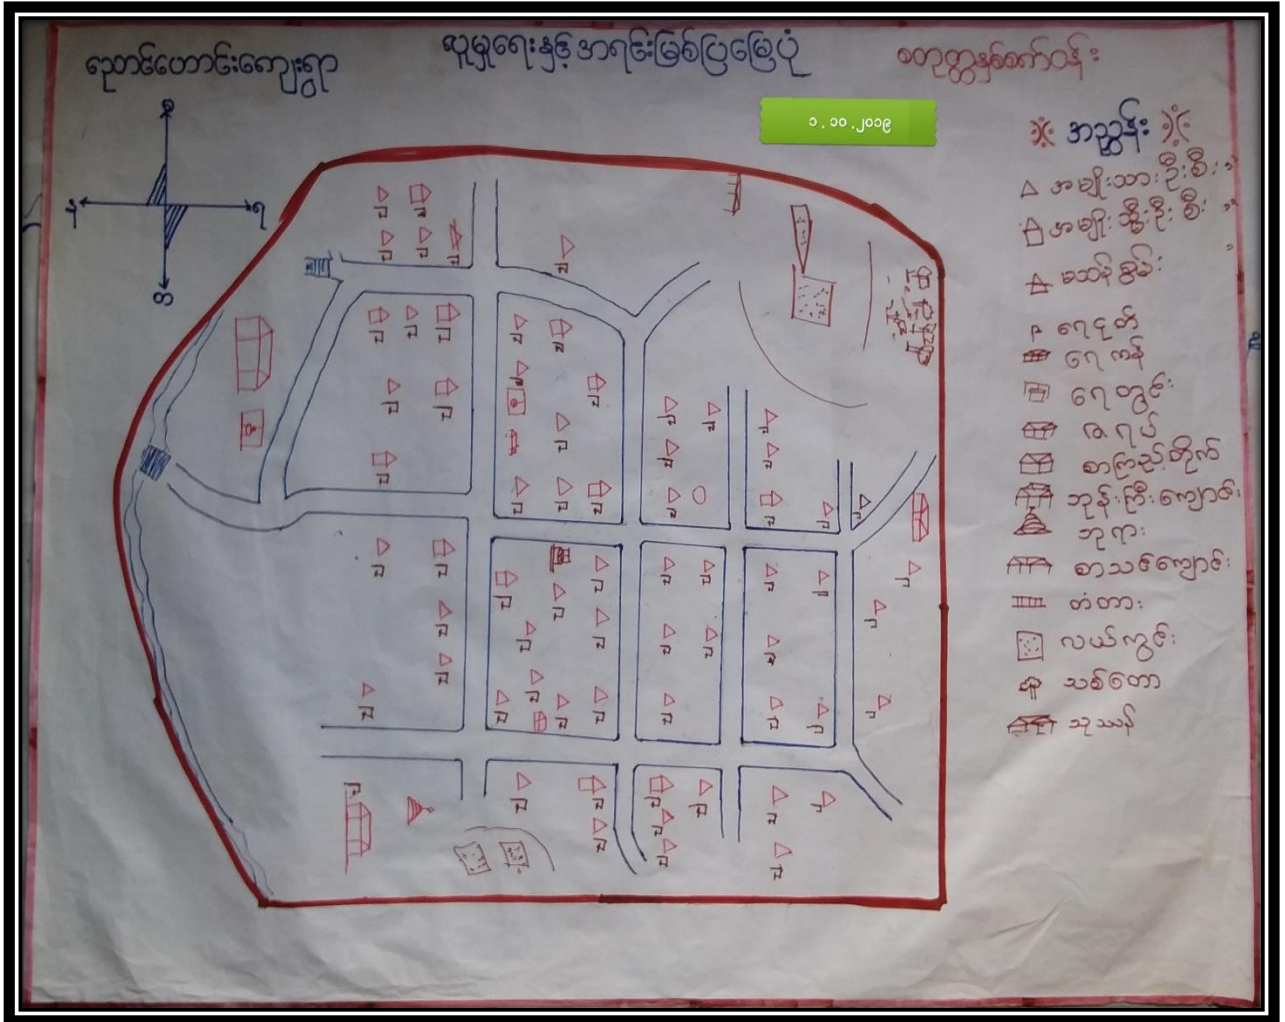 ညောင်ဟောင်းကျေးရွာ
လူမှုရေးနှင့်အရင်းမြစ်ပြမြေပုံ
စတုတ္ထနှစ်စက်ဝန်း
၁.၁၀.၂၀၁၉
အညွှန်း
အမျိုးသားဦးစီး "
အမျိုးသ္မီးဦးစီး "
မသန်စွမ်း "
ရေငုတ်
ရေကန်
ရေတွင်း
ဇရပ်
စာကြည့်တိုက်
ဘုန်းကြီးကျောင်း
ဘုရား
စာသင်ကျောင်း
တံတား
လယ်ကွင်း
သစ်တော
သုဿန်